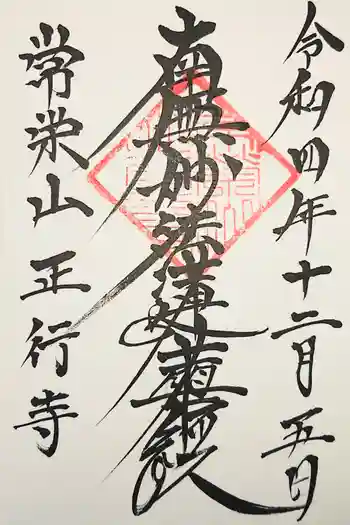 令和四年十二月五日
南無妙法蓮華経
常栄山正行寺